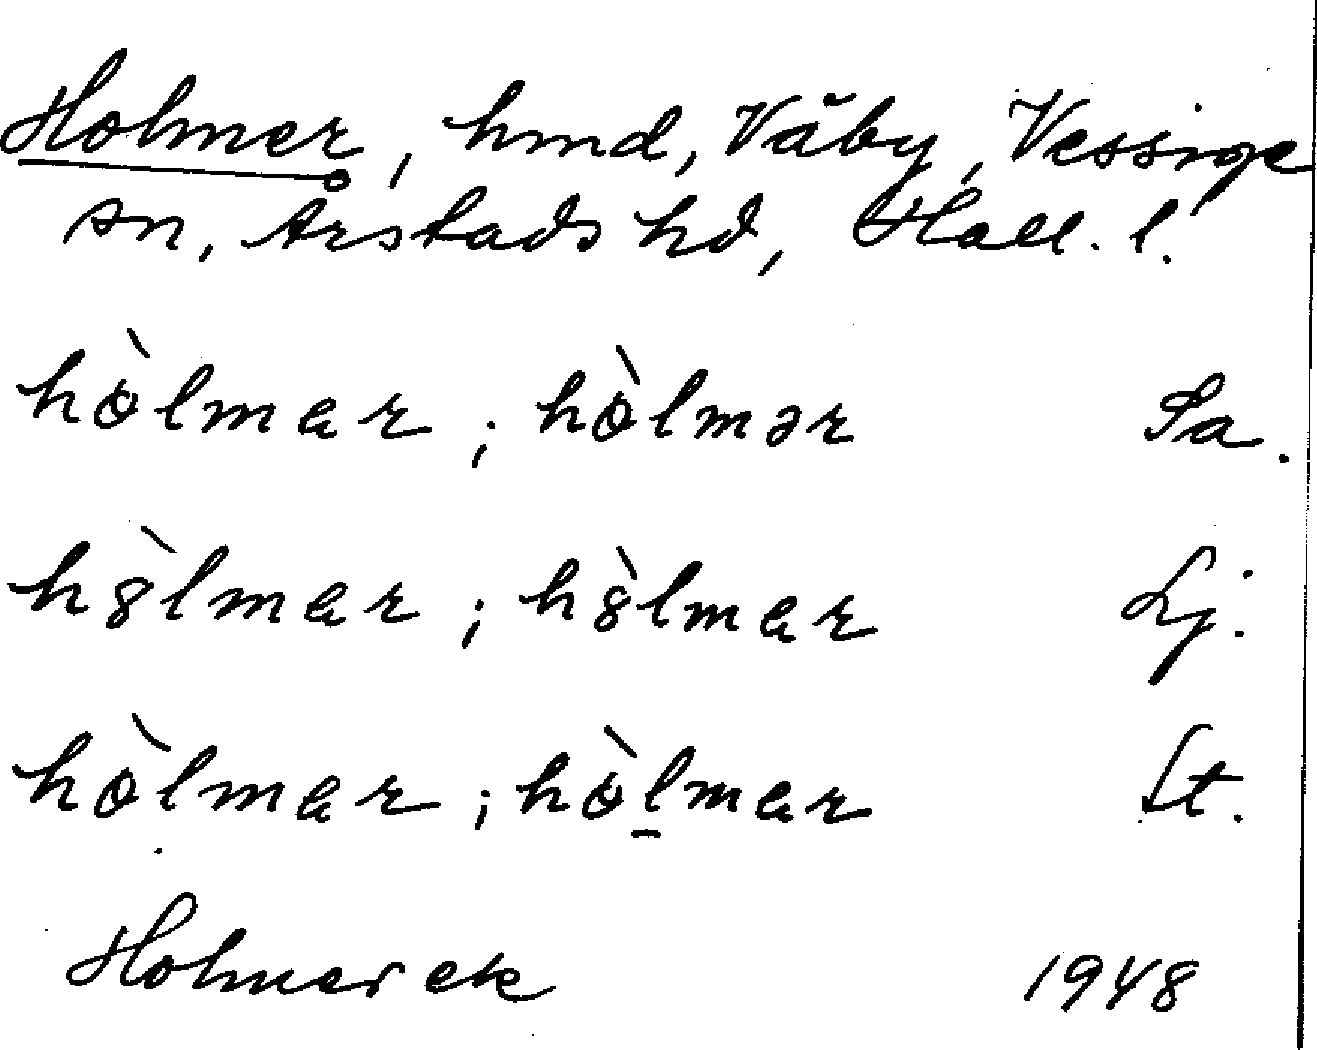 Holmer, hmd, Väby, Vessige
sn, Årstads hd, Hall. l.
hòlmær ; hòlmər Sa.
h8̀lmær ; h8̀lmær Lj.
hòlmær ; hòl̠mær St.
Holmer ek 1948